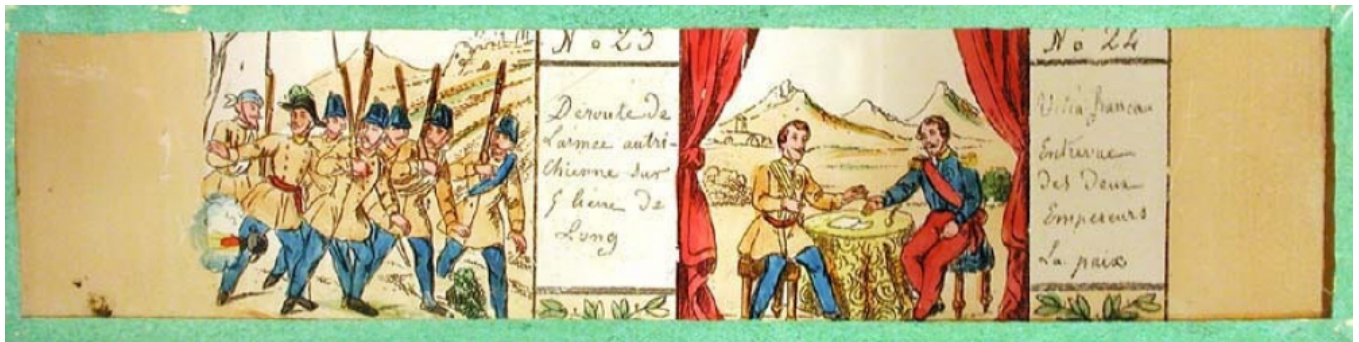 No 23
Déroute de
L'armée autri-
chienne sur
5 lieue de
Long
No 24
Villa franca
Entrevue
des Deux
Empereurs
La paix